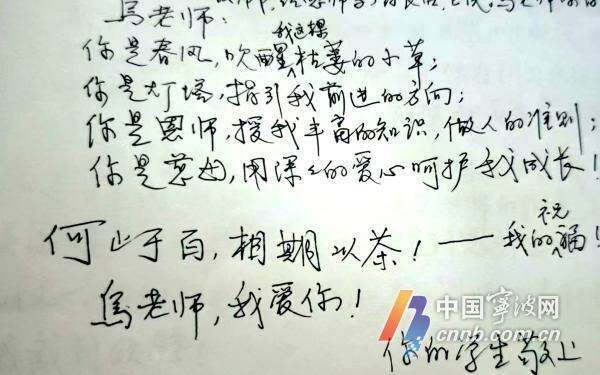 马老师:
你是春风,吹醒我这棵枯萎的小草;
你是灯塔,指引我前进的方向;
你是恩师,授我丰富的知识,做人的准则;
你是慈母,用深深的爱心呵护我成长!
何止于百,相期以茶!——我的祝福!
马老师,我爱你!
你的学生敬上
中国宁波网
cnnb.com.cn